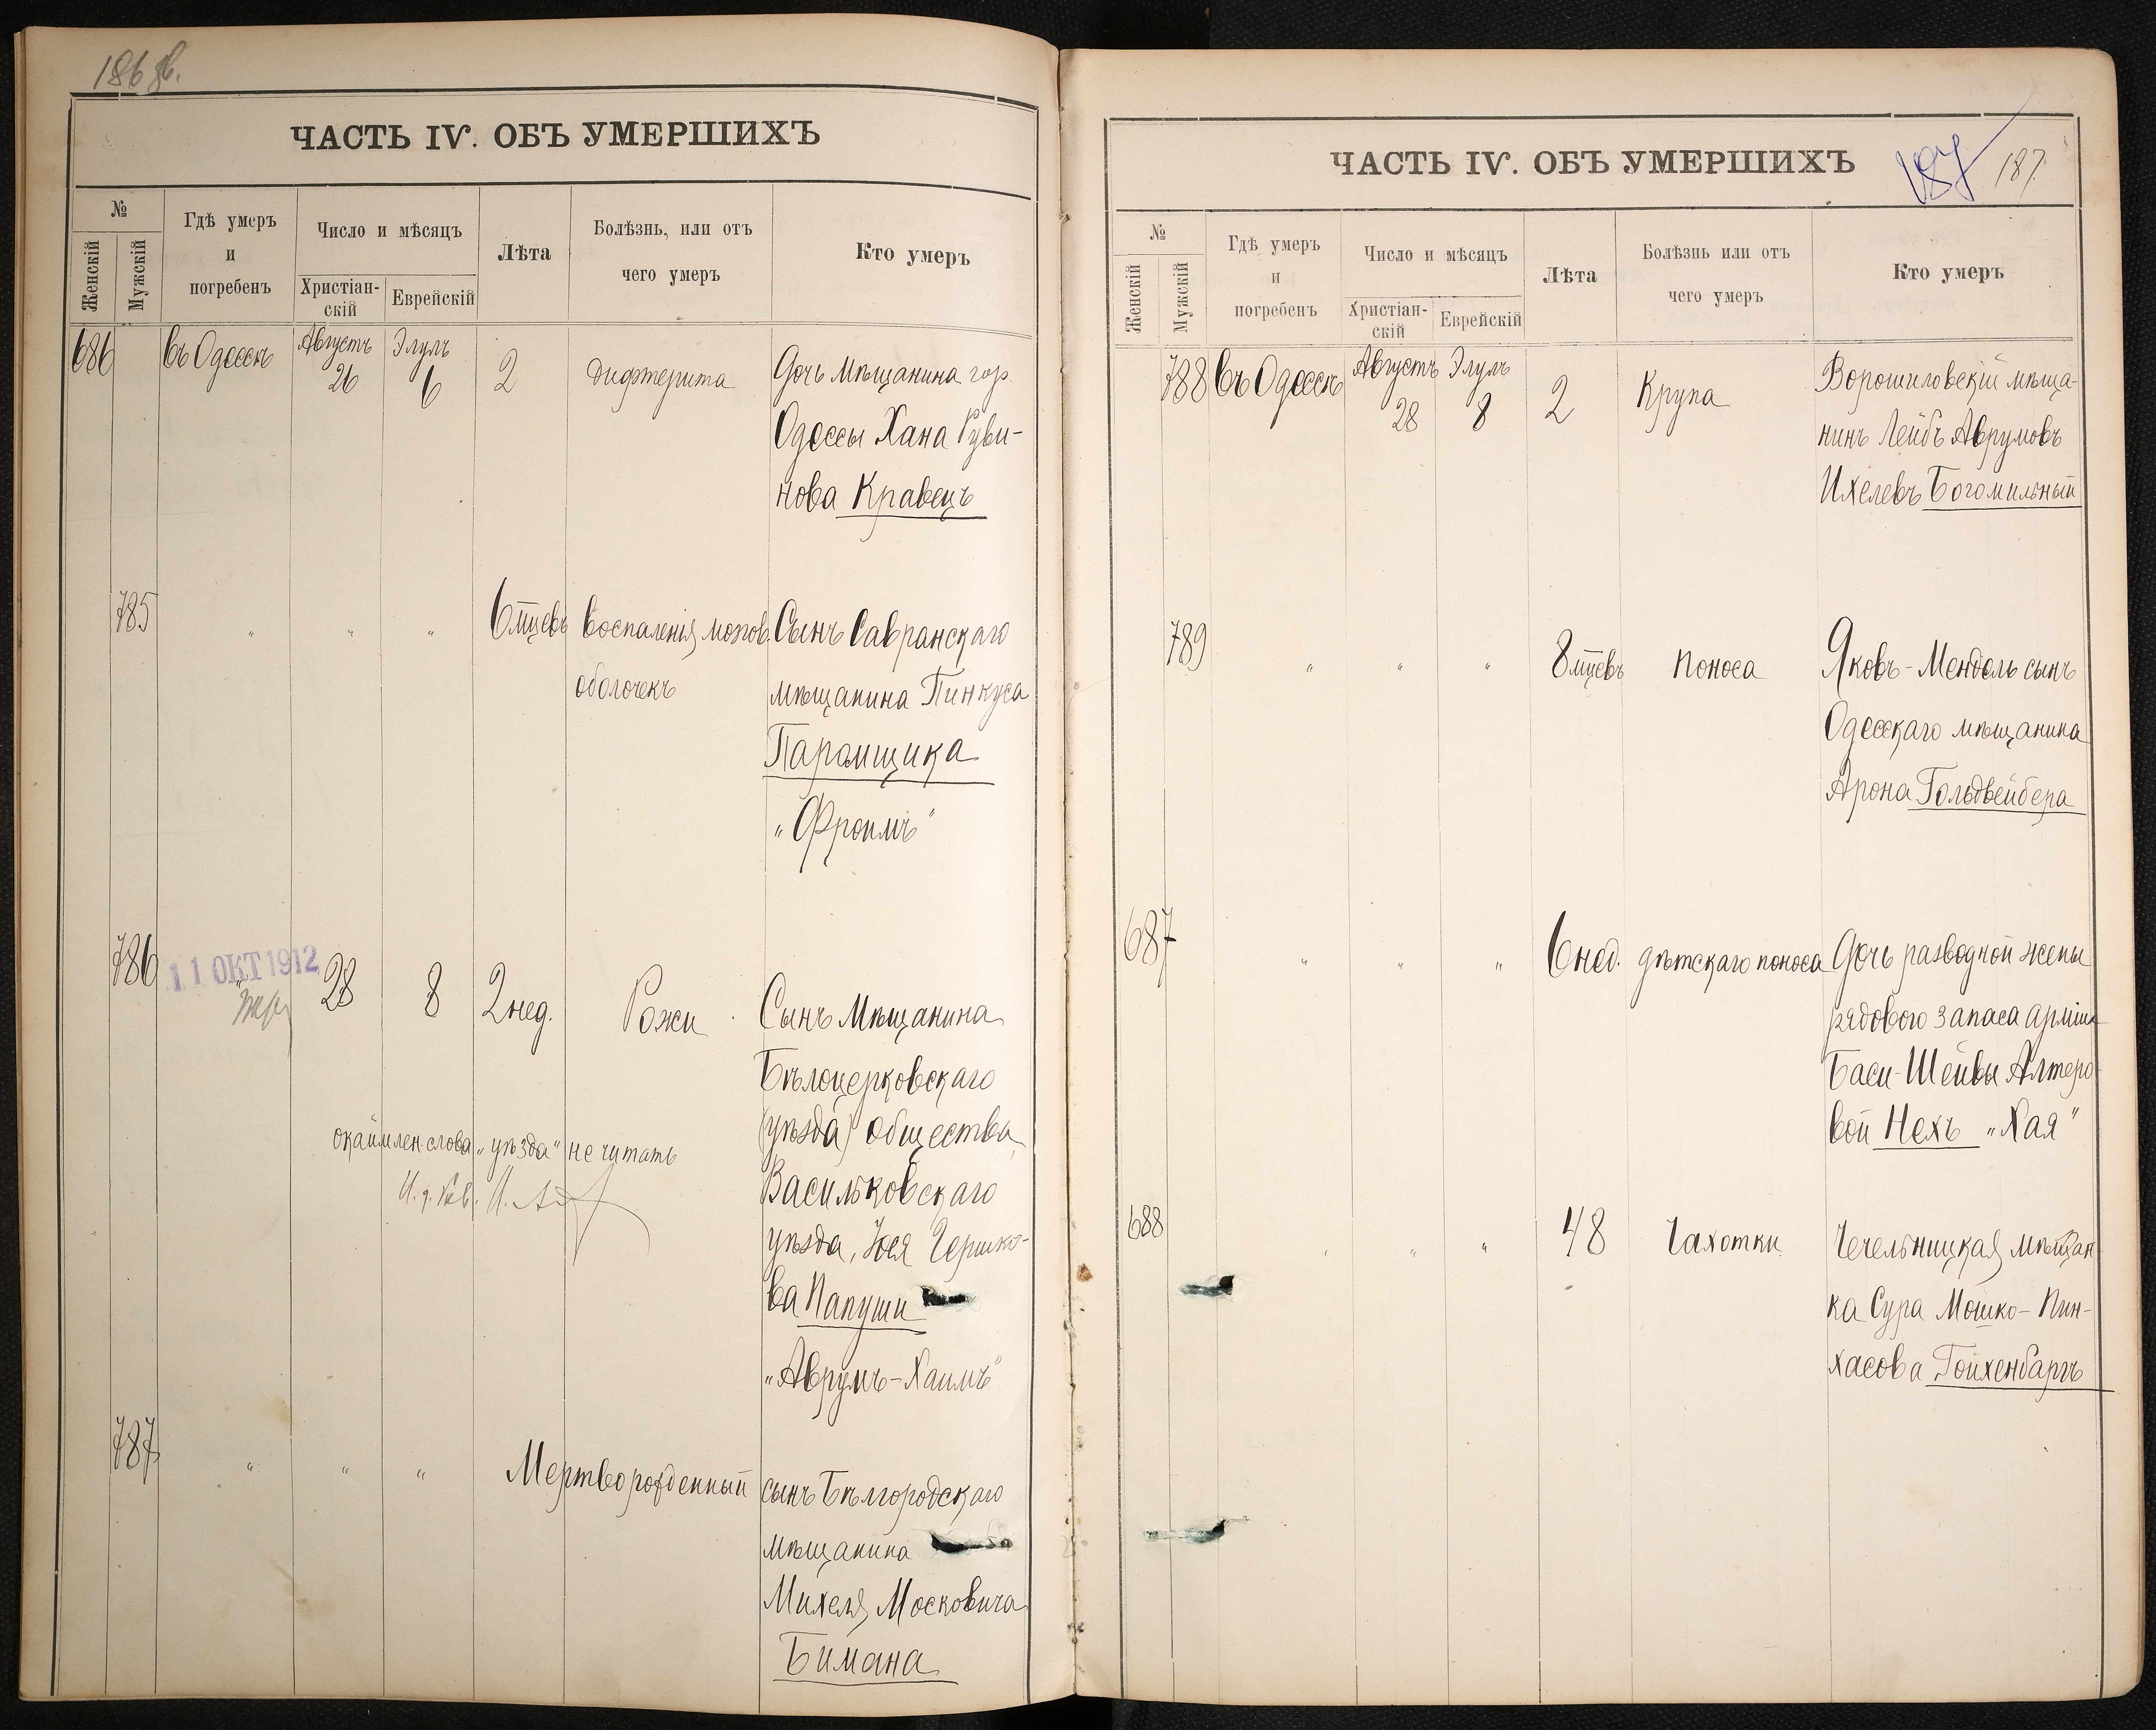 186 об.
ЧАСТЬ IV. ОБЪ УМЕРШИХЪ
№
Женскій
Мужскій
Гдѣ умеръ
и
погребенъ
Число и мѣсяцъ
Христіан-
скій
Еврейскій
Лѣта
Болѣзнь, или отъ
чего умеръ
Кто умеръ
686 Въ Одессѣ Августъ 26 Элулъ 6 2 дифтерита Дочь Мѣщанина гор.
Одессы Хана Руви-
нова Кравецъ
785 " " " 6 мцевъ воспаленія мозгов. Сынъ Савранскаго
оболочекъ мѣщанина Пинкуса
Паромщика
"Фроимъ"
786 11 ОКТ 1912 " 28 8 2 нед. Рожи Сынъ Мѣщанина
Бѣлоцерковскаго
(уѣзда) общества,
окаймлен. слова "уѣзда" не читать
Васильковскаго
уѣзда, Іося Гершко-
ва Папуши
"Аврумъ-Хаимъ"
787 " " " Мертворожденный сынъ Бѣлгородскаго
мѣщанина
Михеля Московича
Бимана
ЧАСТЬ IV. ОБЪ УМЕРШИХЪ
187 187.
№
Женскій
Мужскій
Гдѣ умеръ
и
погребенъ
Число и мѣсяцъ
Христіан-
скій
Еврейскій
Лѣта
Болѣзнь или отъ
чего умеръ
Кто умеръ
788 Въ Одессѣ Августъ 28 Элулъ 8 2 Крупа Ворошиловскій мѣща-
нинъ Лейбъ Аврумовъ
Ихелевъ Богомильный
789 " " " 8 мцевъ Поноса Яковъ-Мендель сынъ
Одесскаго мѣщанина
Арона Гольдвейбера
687 " " " 6 нед. дѣтскаго поноса Дочь разводной жены
рядового запаса арміи
Баси-Шейвы Алтеро-
вой Нехъ "Хая"
688 " " " 48 Чахотки Чечельницкая мѣщан-
ка Сура Мошко-Пин-
хасова Гойхенбаргъ